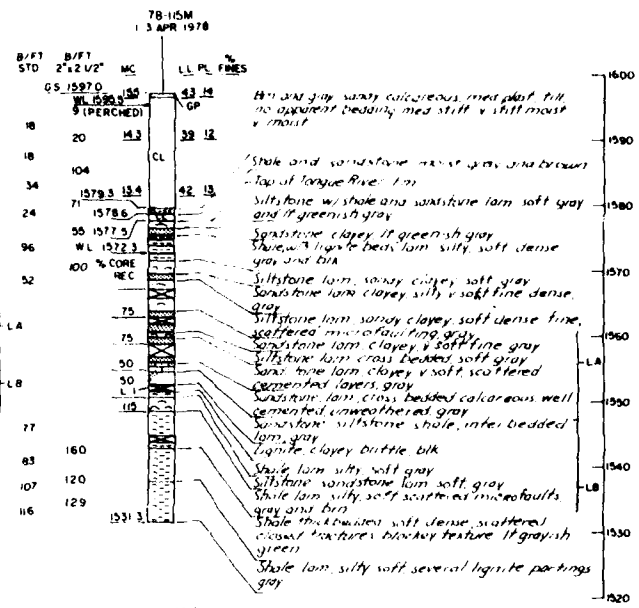 78-115M
1 3 APR 1978
B/FT STD
B/FT 2"x2 1/2"
MC
LL PL
% FINES
GS 1597.0
WL 1595.5
9 (PERCHED)
15.5 43 14
GP
18
20
14.3 39 12
18
CL
104
34
1579.3 13.4 42 13
71
24
1578.6
55 1577.5
96
WL 1572.3
100 % CORE REC
52
75
LA
75
50
LB
50
L 1
115
77
83
160
107
120
129
116
1531.3
Brn and gray sandy calcareous, med plast, till
no apparent bedding med stiff v stiff moist
v moist
Shale and sandstone moist gray and brown
Top of Tongue River Fm
Siltstone w/ shale and sandstone lam soft gray
and lt greenish gray
Sandstone clayey lt greenish gray
Shale, w/ lignite beds lam, silty, soft dense
gray and blk
Siltstone lam, sandy clayey soft gray
Sandstone lam clayey, silty v soft fine dense,
gray
Siltstone lam, sandy clayey, soft dense fine,
scattered microfaulting gray
Sandstone lam, clayey, v soft fine gray
Siltstone lam cross bedded, soft gray
Sandstone lam clayey v soft, scattered
cemented layers, gray
Sandstone, lam, cross bedded calcareous well
cemented, unweathered, gray
Sandstone siltstone shale, inter bedded
lam, gray
Lignite, clayey brittle, blk
Shale, lam silty, soft gray
Siltstone sandstone lam soft, gray
Shale lam, silty, soft scattered microfaults,
gray and brn
Shale thick bedded soft dense, scattered
closed fractures blockey texture lt grayish
green
Shale lam, silty soft several lignite partings
gray
LA
LB
1600
1590
1580
1570
1560
1550
1540
1530
1520